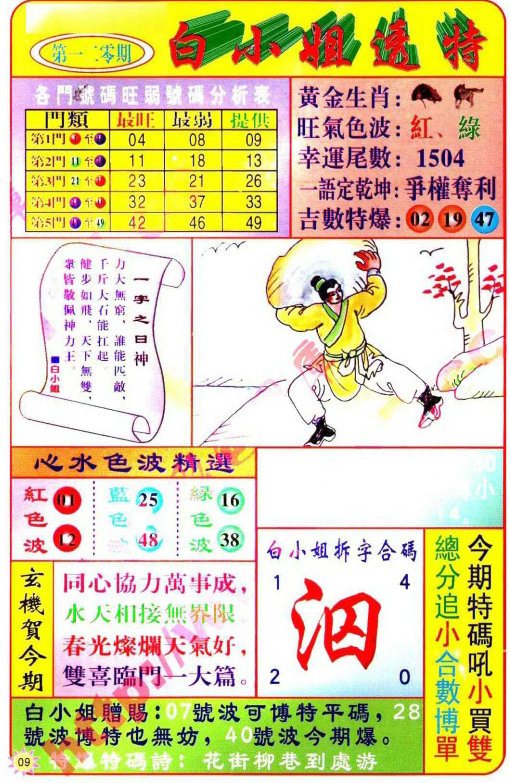 第一二零期
白小姐透特
各門號碼旺弱號碼分析表
門類 最旺 最弱 提供
第1門 至 04 08 09
第2門 11 至 11 18 13
第3門 21 至 23 21 26
第4門 至 32 37 33
第5門 至 49 42 46 49
黃金生肖：
旺氣色波：紅、綠
幸運尾數：1504
一語定乾坤：爭權奪利
吉數特爆：02 19 47
一字之曰神
力大無窮，誰能匹敵，
千斤大石能扛起。
健步如飛，天下無雙，
衆皆敬佩神力王。
■白小姐
心水色波精選
紅色波 01 12
藍色波 25 48
綠色波 16 38
玄機賀今期
同心協力萬事成，
水天相接無界限
春光燦爛天氣好，
雙喜臨門一大篇。
白小姐拆字合碼
1 4
泅
2 0
今期特碼吼小買雙
總分追小合數博單
白小姐贈賜：07號波可博特平碼，28
號波博特也無妨，40號波今期爆。
特爆特碼詩：花街柳巷到處游
09